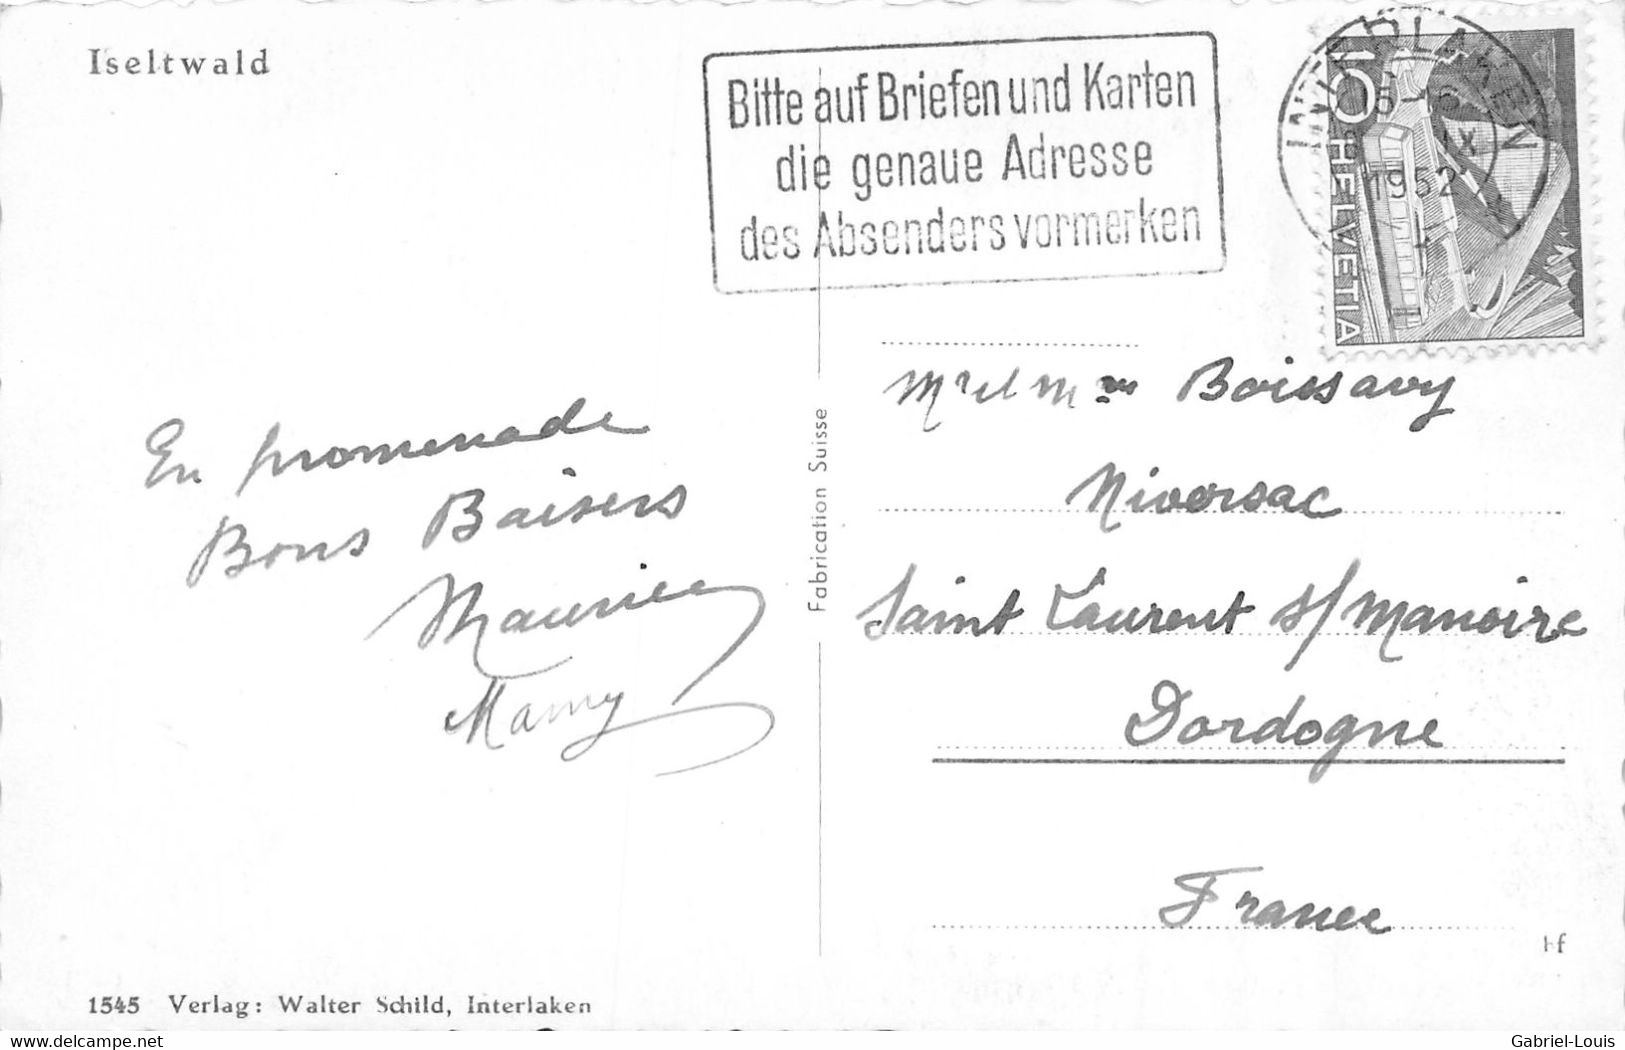 Iseltwald
Bitte auf Briefen und Karten
die genaue Adresse
des Absenders vormerken
INTERLAKEN
15-16
IX
1952
10
HELVETIA
En promenade
Bons Baisers
Maurice
Mamy
Fabrication Suisse
Mr et Mme Boissavy
Niversac
Saint Laurent s/Manoire
Dordogne
France
1545 Verlag: Walter Schild, Interlaken
www.delcampe.net
Gabriel-Louis